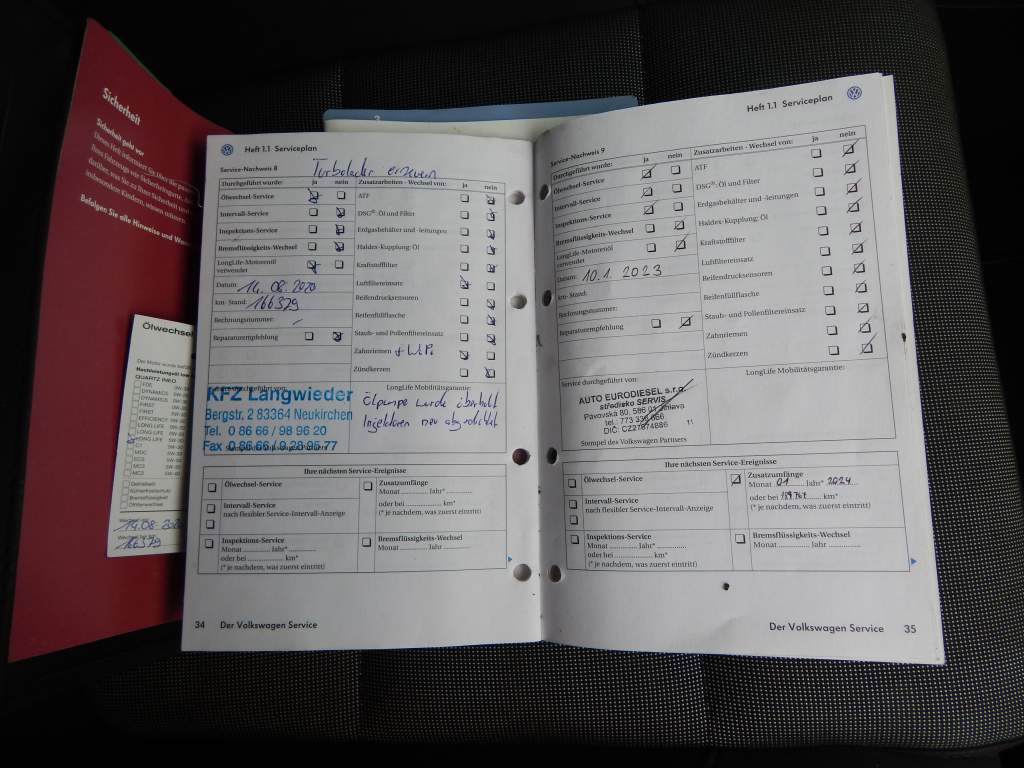 Sicherheit
Sicherheit geht vor
Befolgen Sie alle Hinweise und
Ölwechsel
QUARTZ INEO
14.08.2020
166379
Heft 1.1 Serviceplan
Service-Nachweis 8
Turbolader erneuern
Durchgeführt wurde: ja nein
Ölwechsel-Service
Intervall-Service
Inspektions-Service
Bremsflüssigkeits-Wechsel
LongLife-Motorenöl
verwendet
Datum: 14.08.2020
km-Stand: 166379
Rechnungsnummer:
Reparaturempfehlung
Zusatzarbeiten - Wechsel von: ja nein
ATF
DSG®: Öl und Filter
Erdgasbehälter und -leitungen
Haldex-Kupplung: Öl
Kraftstofffilter
Luftfiltereinsatz
Reifendrucksensoren
Reifenfüllflasche
Staub- und Pollenfiltereinsatz
Zahnriemen + WaPu
Zündkerzen
KFZ Langwieder
Bergstr. 2 83364 Neukirchen
Tel. 0 86 66 / 98 96 20
Fax 0 86 66 / 9 28 95 77
LongLife Mobilitätsgarantie:
Ölpumpe wurde überholt
Injektoren neu abgedichtet
Ihre nächsten Service-Ereignisse
Ölwechsel-Service
Intervall-Service
nach flexibler Service-Intervall-Anzeige
Inspektions-Service
Monat ............ Jahr* ............
oder bei ............ km*
(* je nachdem, was zuerst eintritt)
Zusatzumfänge
Monat ............ Jahr* ............
oder bei ............ km*
(* je nachdem, was zuerst eintritt)
Bremsflüssigkeits-Wechsel
Monat ............ Jahr ............
34 Der Volkswagen Service
Heft 1.1 Serviceplan
Service-Nachweis 9
Durchgeführt wurde: ja nein
Ölwechsel-Service
Intervall-Service
Inspektions-Service
Bremsflüssigkeits-Wechsel
LongLife-Motorenöl
verwendet
Datum: 10.1.2023
km-Stand:
Rechnungsnummer:
Reparaturempfehlung
Zusatzarbeiten - Wechsel von: ja nein
ATF
DSG®: Öl und Filter
Erdgasbehälter und -leitungen
Haldex-Kupplung: Öl
Kraftstofffilter
Luftfiltereinsatz
Reifendrucksensoren
Reifenfüllflasche
Staub- und Pollenfiltereinsatz
Zahnriemen
Zündkerzen
Service durchgeführt von:
AUTO EURODIESEL s.r.o.
středisko SERVIS
Pavovska 80, 586 01 Jihlava
DIČ: CZ27674886
11
Stempel des Volkswagen Partners
LongLife Mobilitätsgarantie:
Ihre nächsten Service-Ereignisse
Ölwechsel-Service
Intervall-Service
nach flexibler Service-Intervall-Anzeige
Inspektions-Service
Monat ............ Jahr* ............
oder bei ............ km*
(* je nachdem, was zuerst eintritt)
Zusatzumfänge
Monat 01 Jahr* 2024
oder bei km*
(* je nachdem, was zuerst eintritt)
Bremsflüssigkeits-Wechsel
Monat ............ Jahr ............
Der Volkswagen Service 35